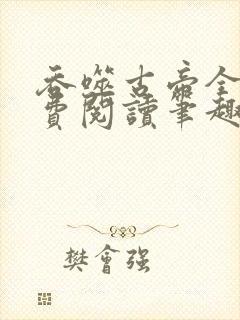 吞噬古帝全
費閱讀筆趣
樊會强